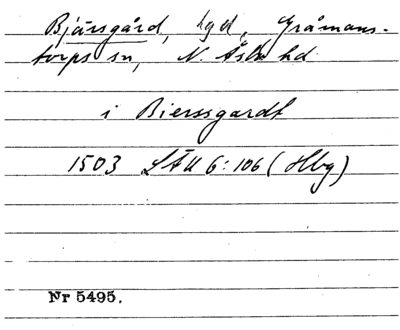 Bjärsgård, hgd, Gråmans-
torps sn, N. Åsbo hd
i Bierssgardt
1503 LÄU 6:106 (Hbg)
Nr 5495.